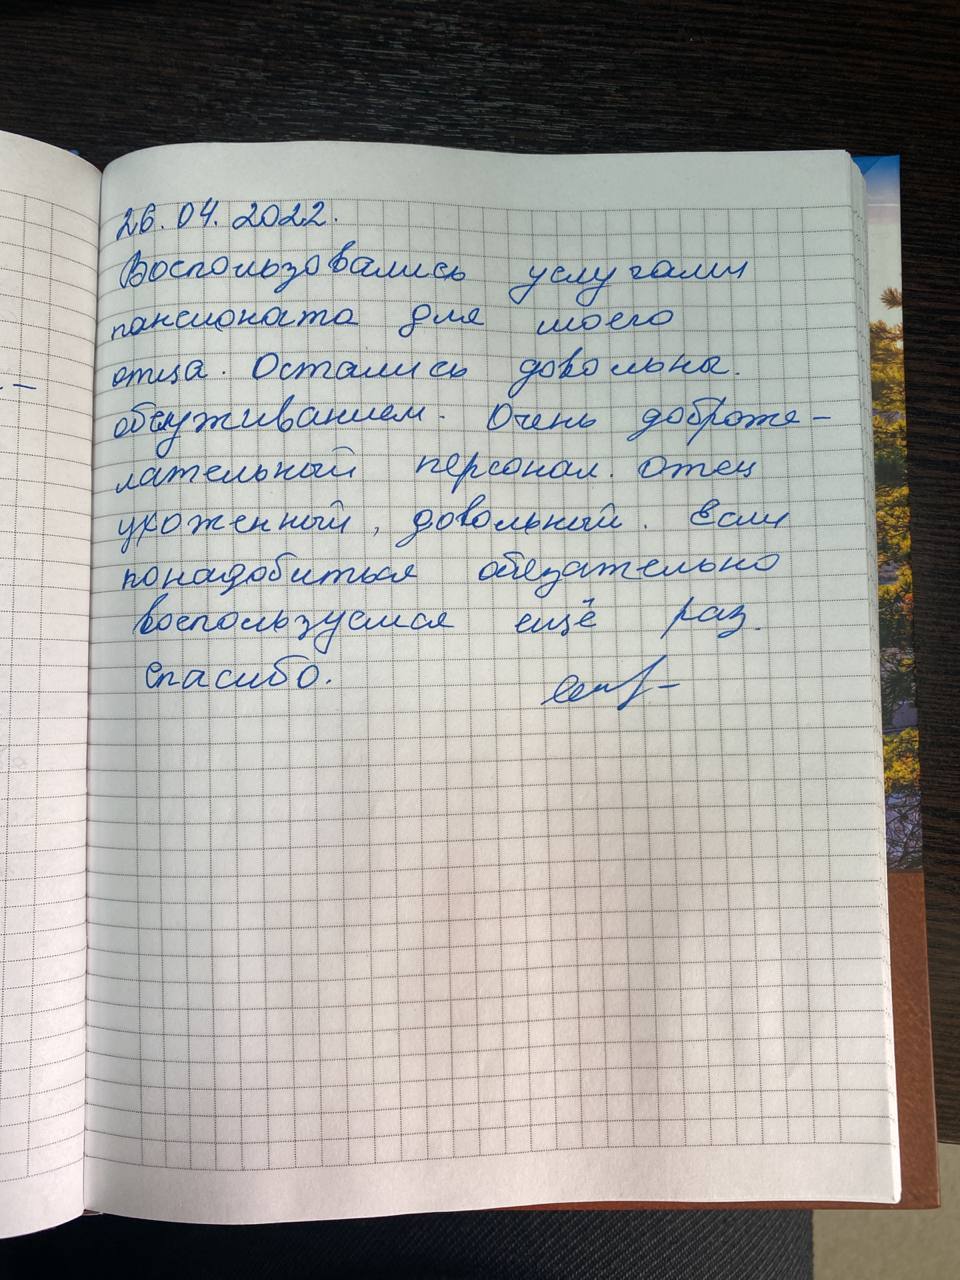 26.04.2022.
Воспользовались услугами
пансионата для моего
отца. Остались довольны.
обслуживанием. Очень доброже-
лательный персонал. Отец
ухоженный, довольный. Если
понадобиться обязательно
воспользуемся ещё раз.
Спасибо.